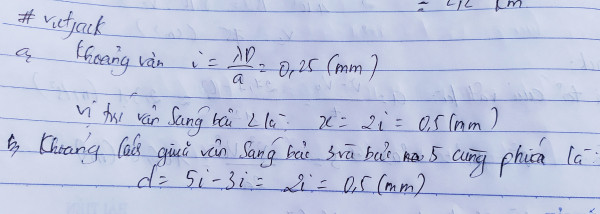 = 2,2 km
# vietjack
a, Khoảng vân i = λD/a = 0,25 (mm)
vị trí vân sáng bậc 2 là x = 2i = 0,5 (mm)
b, Khoảng cách giữa vân sáng bậc 3 và bậc 5 cùng phía là:
d = 5i - 3i = 2i = 0,5 (mm)